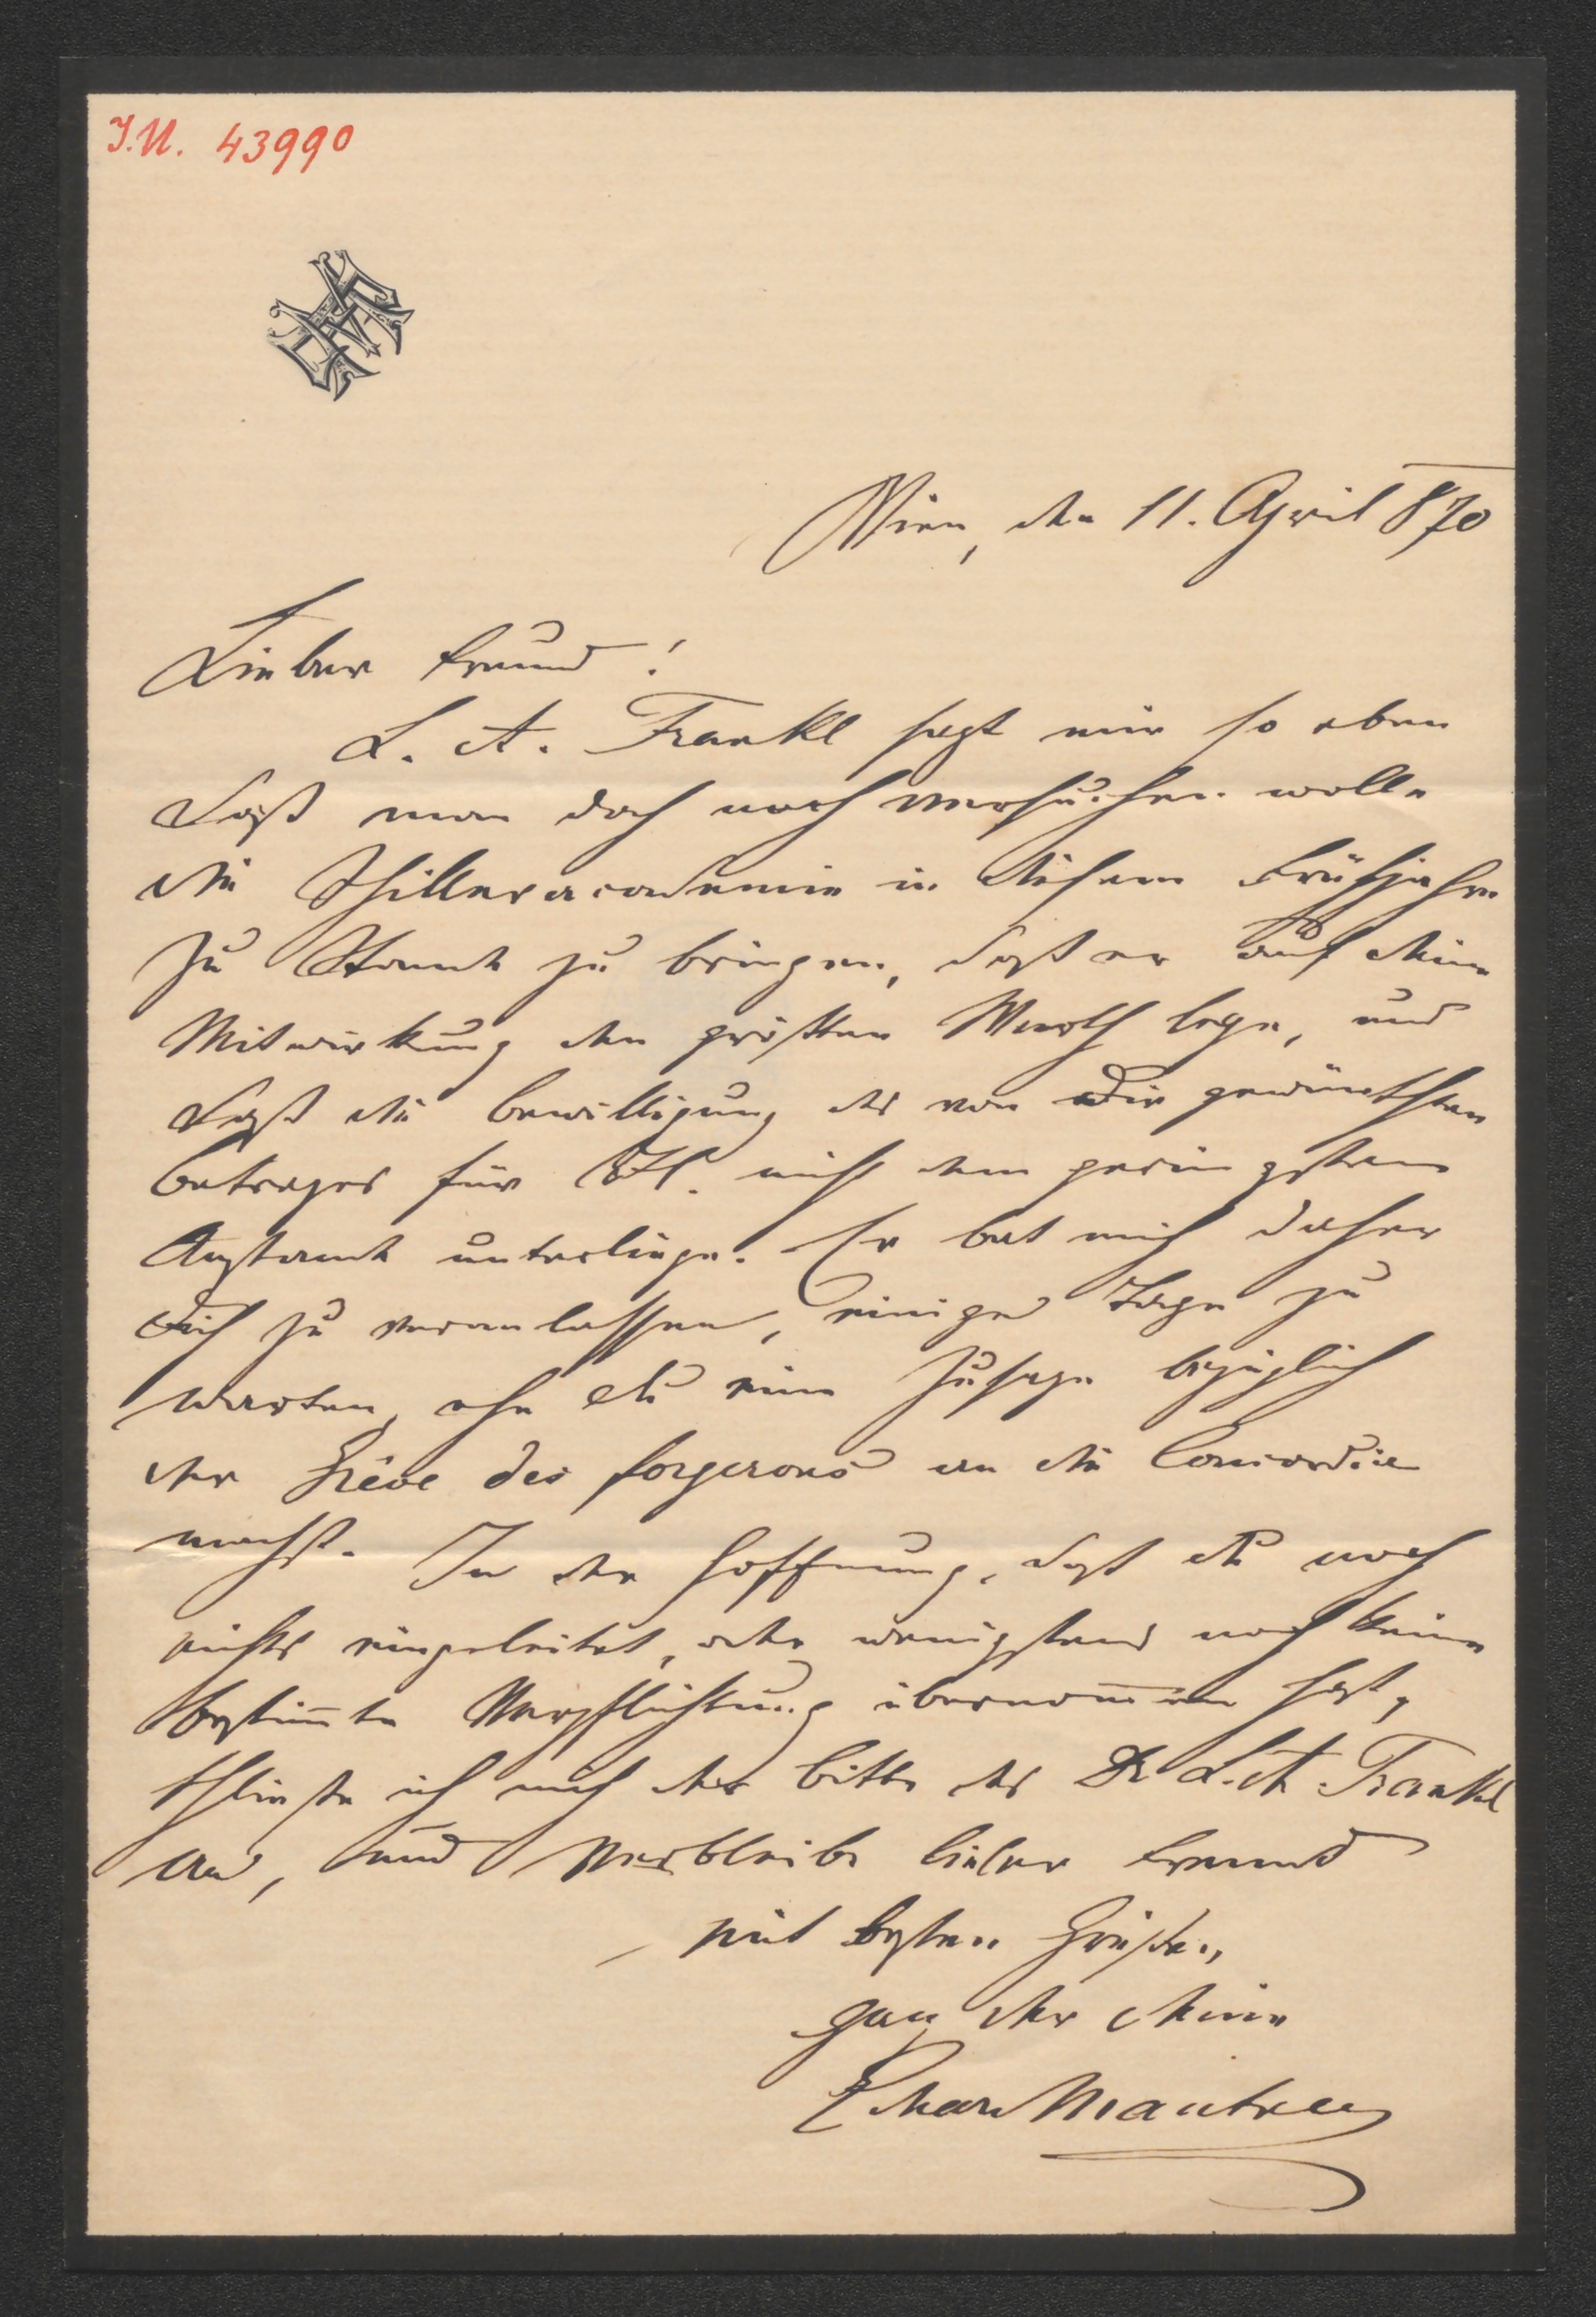 I.N. 43990
Wien, den 11. April 870
Lieber Freund!
L. A. Frankl sagt mir so eben
daß man doch noch versuchen wolle
die Schilleracademie in diesem Frühjahre
zu Stande zu bringen, daß er auf Deine
Mitwirkung den größten Werth lege, und
daß die Bewilligung des von Dir gewünschten
Betrages für nicht dem geringsten
Anstande unterliege. Er bat mich daher
Dich zu veranlassen, einige Tage zu
warten, ehe Du eine Zusage bezüglich
der Grève des forgerons an die Concordia
machst. In der Hoffnung, daß Du noch
nichts eingeleitet, oder wenigstens noch keine
bestim̅te Verpflichtung übernom̅en hast,
schließe ich mich der Bitte des Dr L. A. Frankl
an, und verbleibe lieber Freund
mit besten Grüßen,
ganz der Deine
Mautner